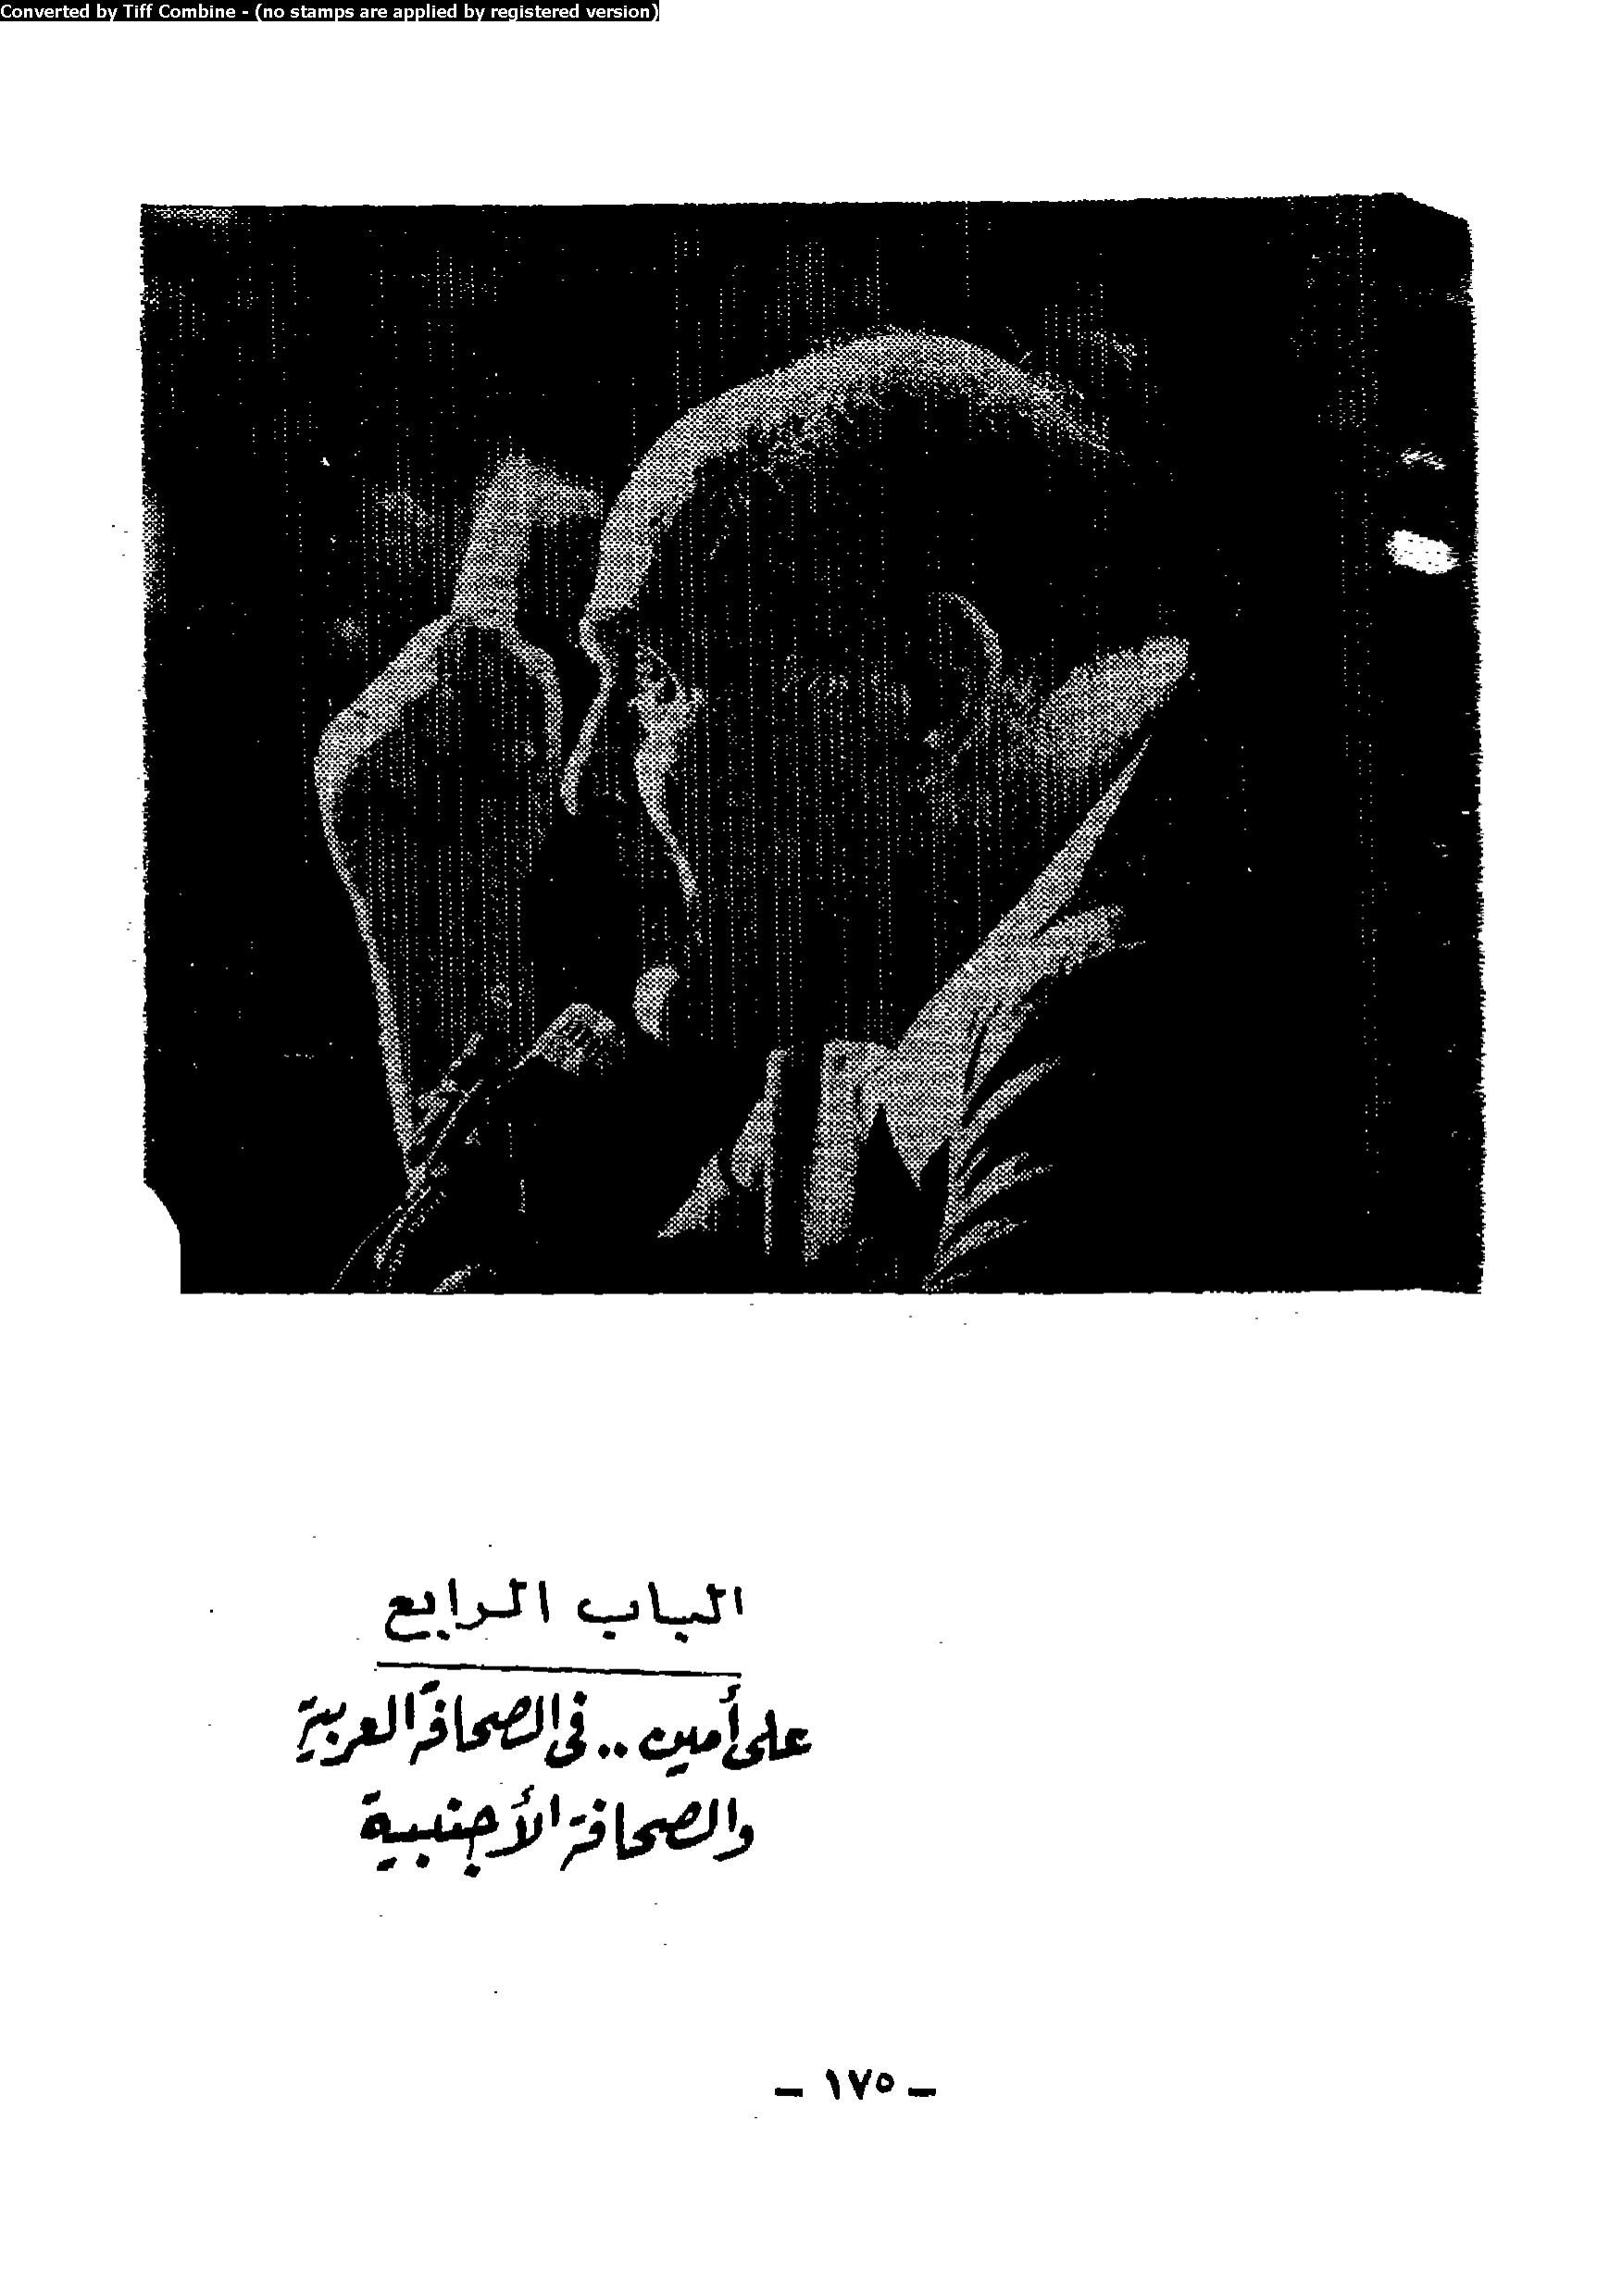 Converted by Tiff Combine - (no stamps are applied by registered version)
الباب الرابع
على أمين .. فى الصحافة العربية
والصحافة الأجنبية
- ١٧٥ -